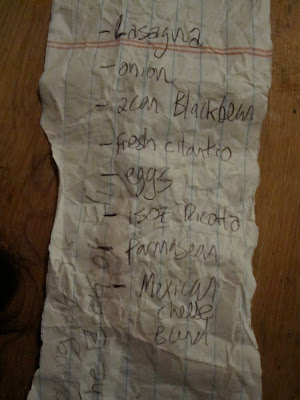 - Lasagna
- onion
- 2 can Blackbean
- fresh cilantro
- eggs
- 15oz Ricotta
- Parmasean
- Mexican
cheese
Blend